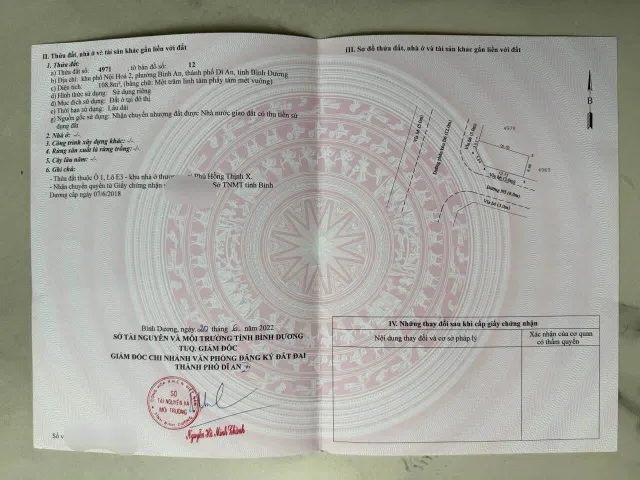 II. Thửa đất, nhà ở và tài sản khác gắn liền với đất
1. Thửa đất:
a) Thửa đất số: 4971, tờ bản đồ số: 12
b) Địa chỉ: khu phố Nội Hoá 2, phường Bình An, thành phố Dĩ An, tỉnh Bình Dương
c) Diện tích: 108,8m², (bằng chữ: Một trăm linh tám phẩy tám mét vuông)
d) Hình thức sử dụng: Sử dụng riêng
đ) Mục đích sử dụng: Đất ở tại đô thị
e) Thời hạn sử dụng: Lâu dài
g) Nguồn gốc sử dụng: Nhận chuyển nhượng đất được Nhà nước giao đất có thu tiền sử
dụng đất
2. Nhà ở: -/-
3. Công trình xây dựng khác: -/-
4. Rừng sản xuất là rừng trồng: -/-
5. Cây lâu năm: -/-
6. Ghi chú:
- Thửa đất thuộc Ô 1, Lô E3 - khu nhà ở thương Phú Hồng Thịnh X.
- Nhận chuyển quyền từ Giấy chứng nhận Sở TNMT tỉnh Bình
Dương cấp ngày 07/6/2018
Bình Dương, ngày 20 tháng 6 năm 2022
SỞ TÀI NGUYÊN VÀ MÔI TRƯỜNG TỈNH BÌNH DƯƠNG
TUQ. GIÁM ĐỐC
GIÁM ĐỐC CHI NHÁNH VĂN PHÒNG ĐĂNG KÝ ĐẤT ĐAI
THÀNH PHỐ DĨ AN
SỞ
TÀI NGUYÊN VÀ
MÔI TRƯỜNG
Nguyễn Hà Minh Thành
Số v
III. Sơ đồ thửa đất, nhà ở và tài sản khác gắn liền với đất
B
Vỉa hè (3.0m)
Vỉa hè (3.0m)
IV. Những thay đổi sau khi cấp giấy chứng nhận
Nội dung thay đổi và cơ sở pháp lý
Xác nhận của cơ quan
có thẩm quyền